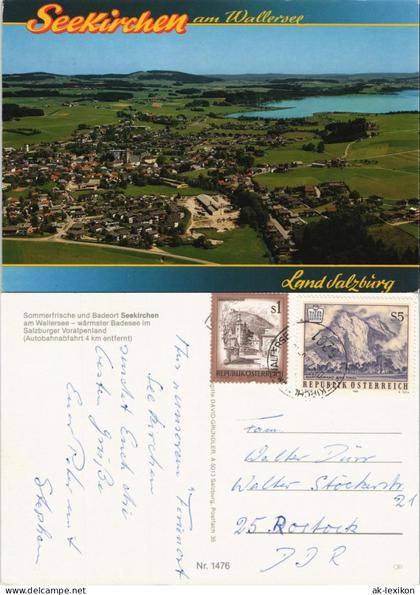 Seekirchen am Wallersee
Land Salzburg
Sommerfrische und Badeort Seekirchen
am Wallersee – wärmster Badesee im
Salzburger Voralpenland
(Autobahnabfahrt 4 km entfernt)
S1
REPUBLIK ÖSTERREICH
S5
REPUBLIK ÖSTERREICH
Brigitte DAVID-GRÜNDLER, A 5013 Salzburg, Postfach 35
Aus unserem
Seekirchen
sendet Euch die
besten Grüße
Euer Peter mit
Stephan
Fam.
Walter Dürr
Walter Stöckerstr.
21
25 Rostock
DDR
Nr. 1476